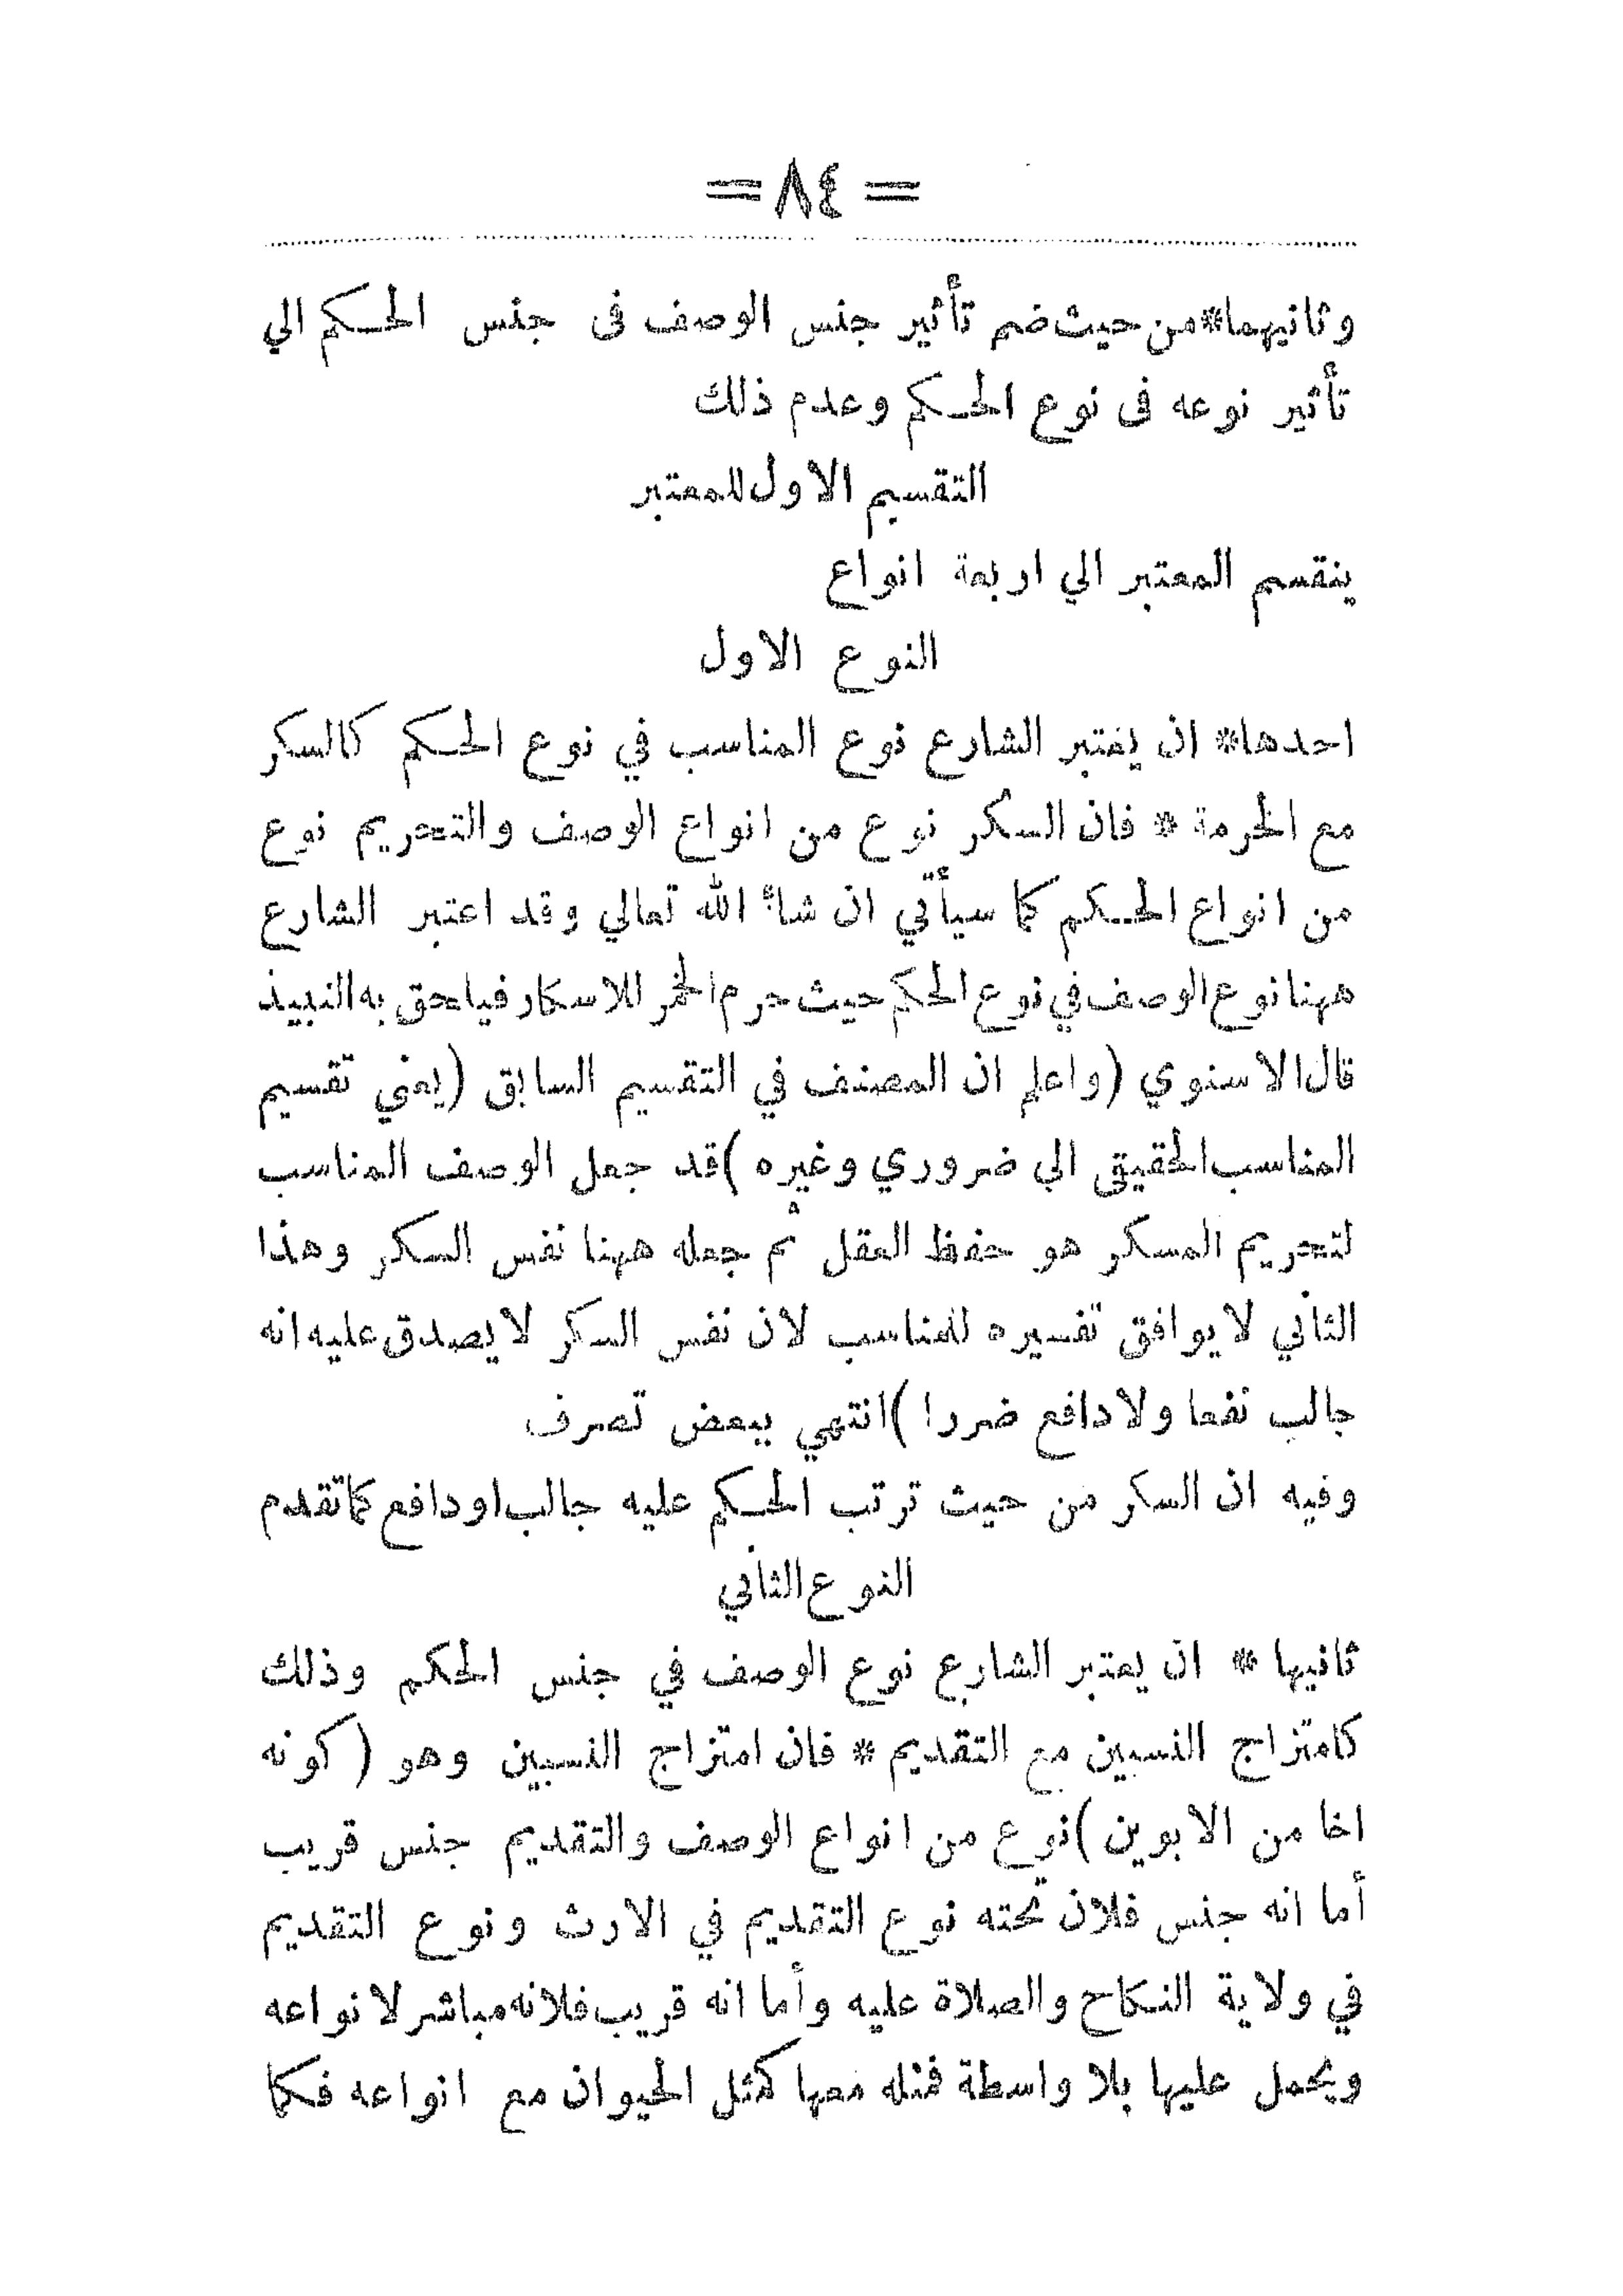 = ٨٤ =
وثانيهما* من حيث ضم تأثير جنس الوصف فى جنس الحكم الي
تأثير نوعه فى نوع الحكم وعدم ذلك
التقسيم الاول للمعتبر
ينقسم المعتبر الي اربعة انواع
النوع الاول
احدها* ان يعتبر الشارع نوع المناسب في نوع الحكم كالسكر
مع الحرمة * فان السكر نوع من انواع الوصف والتحريم نوع
من انواع الحكم كما سيأتي ان شاء الله تعالي وقد اعتبر الشارع
ههنا نوع الوصف في نوع الحكم حيث حرم الخمر للاسكار فيلحق به النبيذ
قال الاسنوي (واعلم ان المصنف في التقسيم السابق (يعني تقسيم
المناسب الحقيقى الي ضروري وغيره )قد جعل الوصف المناسب
لتحريم المسكر هو حفظ العقل ثم جعله ههنا نفس السكر وهذا
الثاني لا يوافق تفسيره للمناسب لان نفس السكر لا يصدق عليه انه
جالب نفعا ولا دافع ضررا )انتهي ببعض تصرف
وفيه ان السكر من حيث ترتب الحكم عليه جالب او دافع كما تقدم
النوع الثاني
ثانيها * ان يعتبر الشارع نوع الوصف في جنس الحكم وذلك
كامتزاج النسبين مع التقديم * فان امتزاج النسبين وهو (كونه
اخا من الابوين )نوع من انواع الوصف والتقديم جنس قريب
أما انه جنس فلان تحته نوع التقديم في الارث ونوع التقديم
في ولاية النكاح والصلاة عليه وأما انه قريب فلانه مباشر لانواعه
ويحمل عليها بلا واسطة فمثله معها كمثل الحيوان مع انواعه فكما